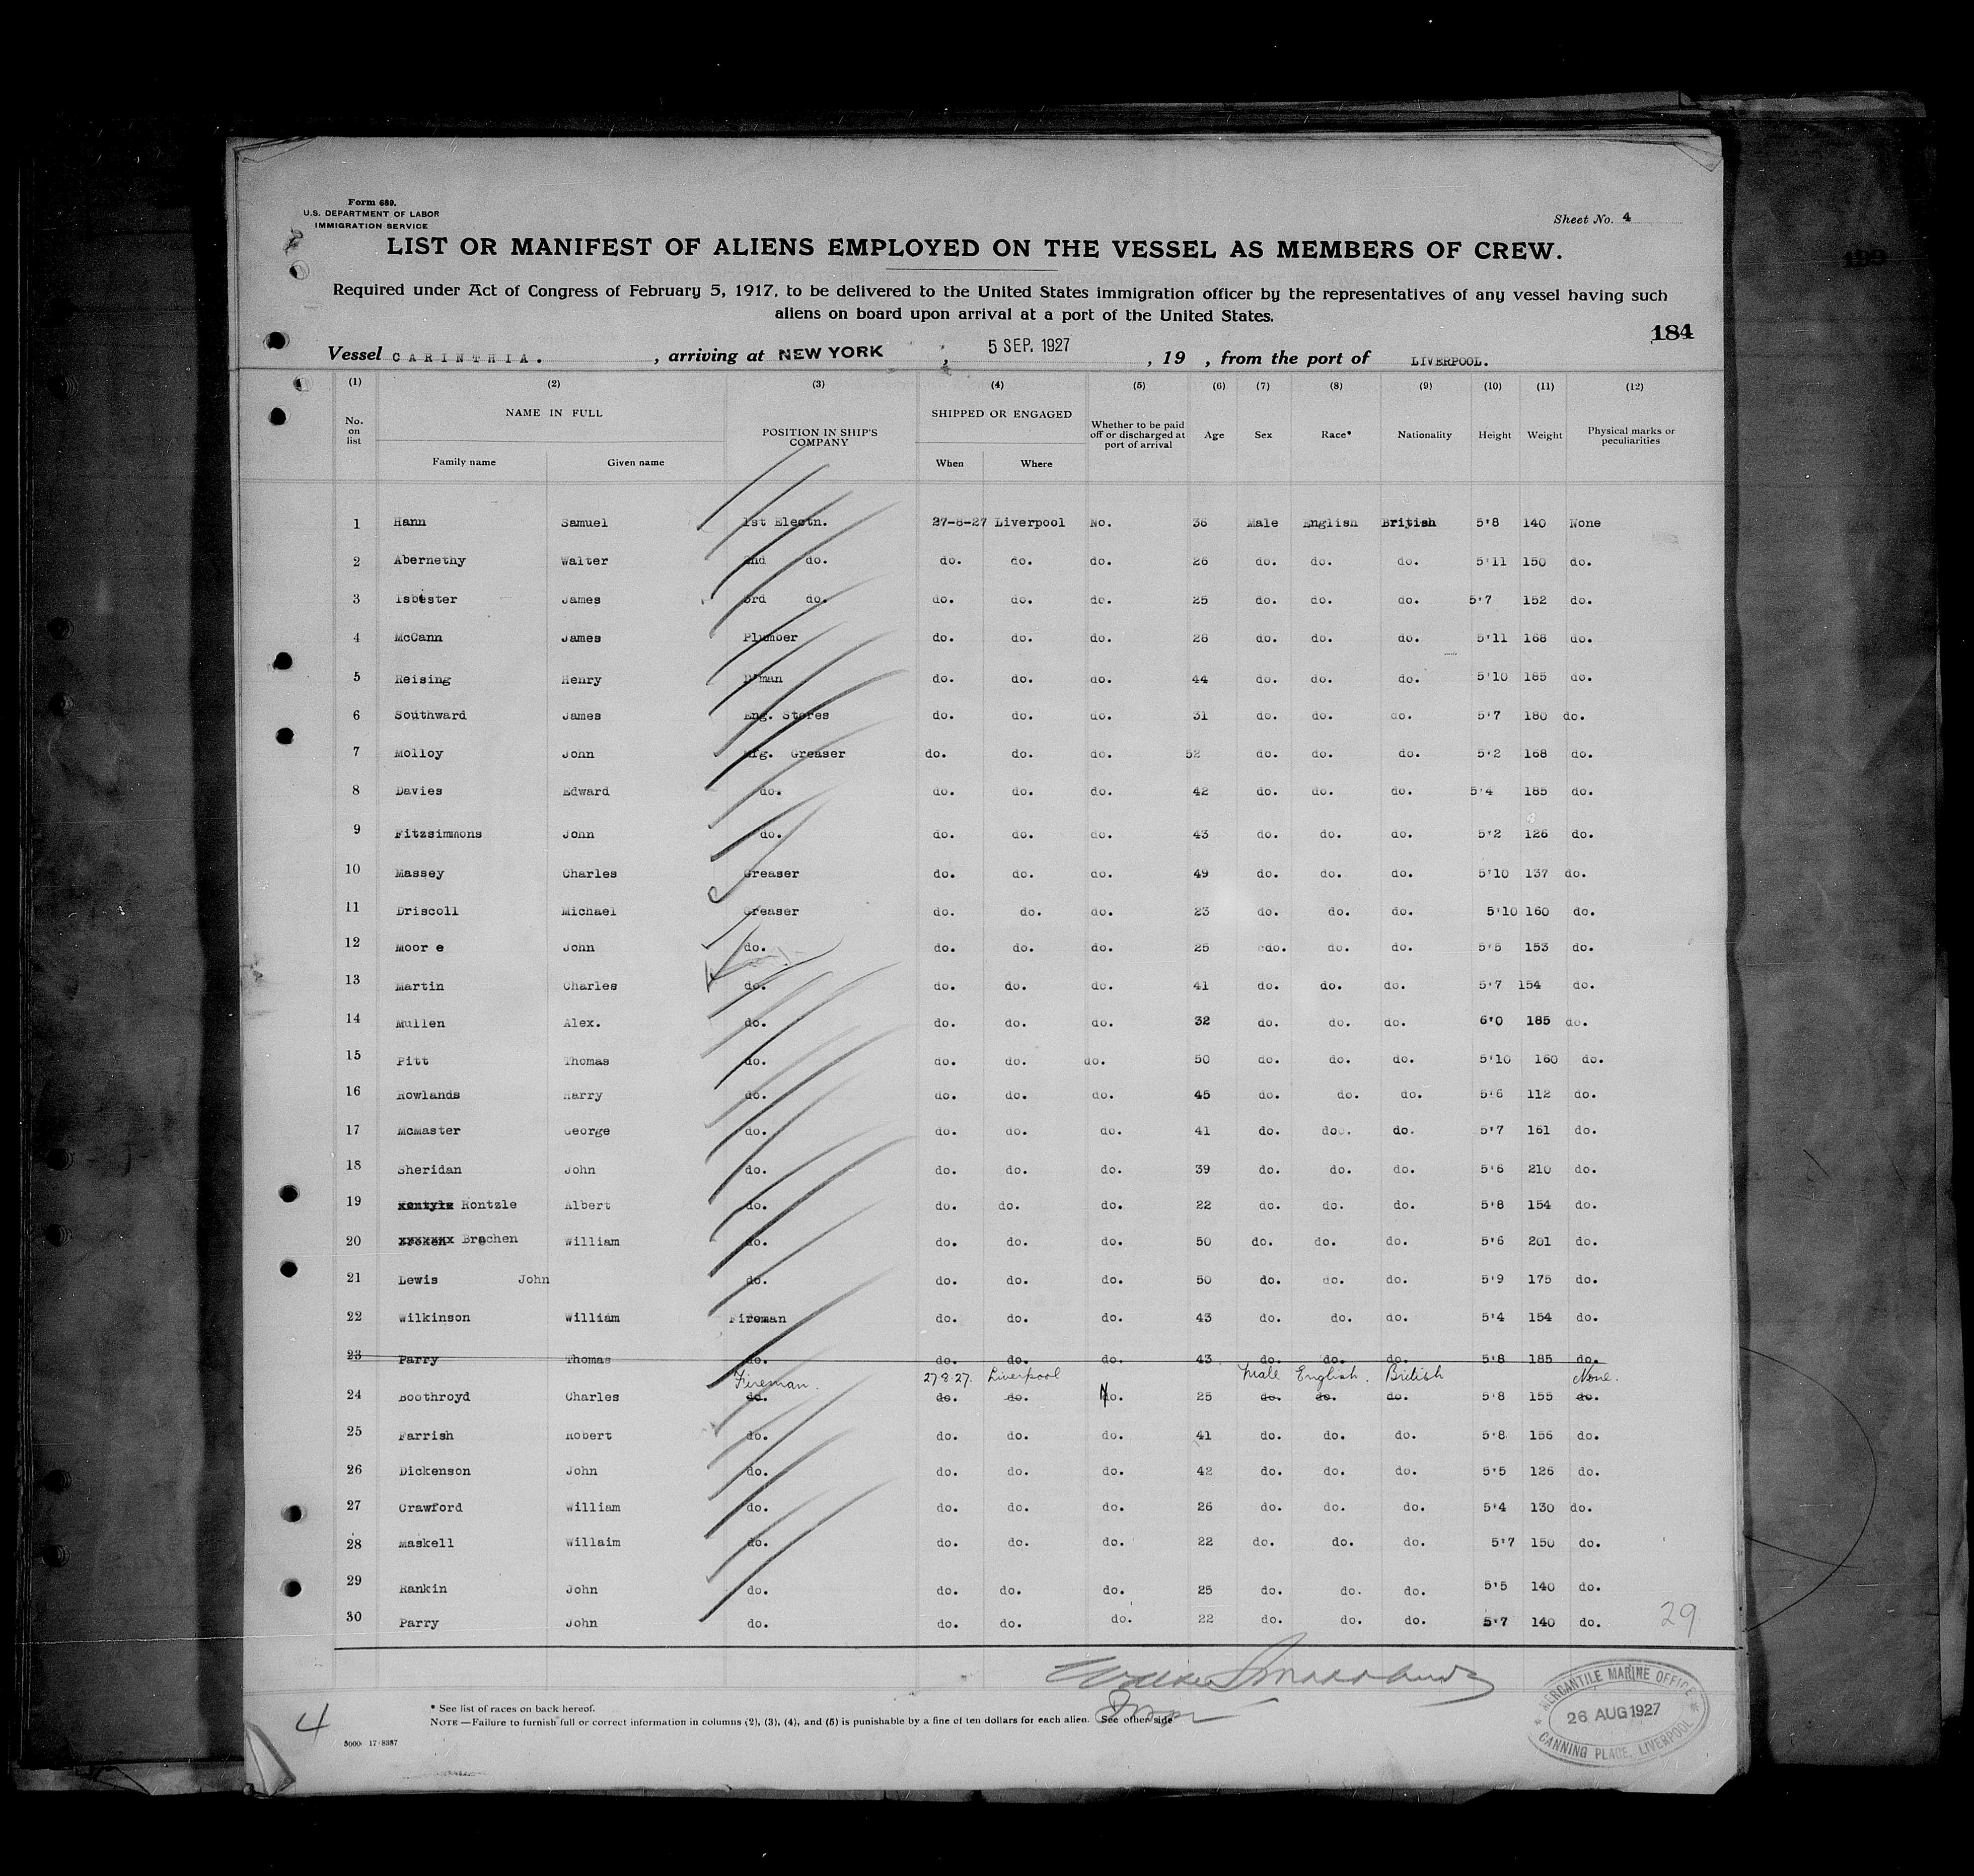 Form 689.
U.S. DEPARTMENT OF LABOR
IMMIGRATION SERVICE
Sheet No. 4
LIST OR MANIFEST OF ALIENS EMPLOYED ON THE VESSEL AS MEMBERS OF CREW.
Required under Act of Congress of February 5, 1917, to be delivered to the United States immigration officer by the representatives of any vessel having such
aliens on board upon arrival at a port of the United States.
184
Vessel CARINTHIA. , arriving at NEW YORK , 5 SEP. 1927 , 19 , from the port of LIVERPOOL.
(1) (2) (3) (4) (5) (6) (7) (8) (9) (10) (11) (12)
No. on list NAME IN FULL Family name Given name POSITION IN SHIP'S COMPANY SHIPPED OR ENGAGED When Where Whether to be paid off or discharged at port of arrival Age Sex Race* Nationality Height Weight Physical marks or peculiarities
1 Hann Samuel 1st Electn. 27-8-27 Liverpool No. 36 Male English British 5'8 140 None
2 Abernethy Walter 2nd do. do. do. do. 26 do. do. do. 5'11 150 do.
3 Isbester James 3rd do. do. do. do. 25 do. do. do. 5'7 152 do.
4 McCann James Plumber do. do. do. 28 do. do. do. 5'11 168 do.
5 Reising Henry D'man do. do. do. 44 do. do. do. 5'10 185 do.
6 Southward James Eng. Stores do. do. do. 31 do. do. do. 5'7 180 do.
7 Molloy John Greaser do. do. do. 52 do. do. do. 5'2 168 do.
8 Davies Edward do. do. do. do. 42 do. do. do. 5'4 185 do.
9 Fitzsimmons John do. do. do. do. 43 do. do. do. 5'2 126 do.
10 Massey Charles Greaser do. do. do. 49 do. do. do. 5'10 137 do.
11 Driscoll Michael Greaser do. do. do. 23 do. do. do. 5'10 160 do.
12 Moor e John do. do. do. do. 25 do. do. do. 5'5 153 do.
13 Martin Charles do. do. do. do. 41 do. do. do. 5'7 154 do.
14 Mullen Alex. do. do. do. do. 32 do. do. do. 6'0 185 do.
15 Pitt Thomas do. do. do. do. 50 do. do. do. 5'10 160 do.
16 Rowlands Harry do. do. do. do. 45 do. do. do. 5'6 112 do.
17 McMaster George do. do. do. do. 41 do. do. do. 5'7 161 do.
18 Sheridan John do. do. do. do. 39 do. do. do. 5'6 210 do.
19 Rontzle Albert do. do. do. do. 22 do. do. do. 5'8 154 do.
20 Brachen William do. do. do. do. 50 do. do. do. 5'6 201 do.
21 Lewis John do. do. do. do. 50 do. do. do. 5'9 175 do.
22 Wilkinson William Fireman do. do. do. 43 do. do. do. 5'4 154 do.
23 Parry Thomas do. do. do. do. 43 do. do. do. 5'8 185 do.
Fireman. 27.8.27. Liverpool Male English. British None.
24 Boothroyd Charles do. do. do. No. 25 do. do. do. 5'8 155 do.
25 Farrish Robert do. do. do. do. 41 do. do. do. 5'8 156 do.
26 Dickenson John do. do. do. do. 42 do. do. do. 5'5 126 do.
27 Crawford William do. do. do. do. 26 do. do. do. 5'4 130 do.
28 Maskell Willaim do. do. do. do. 22 do. do. do. 5'7 150 do.
29 Rankin John do. do. do. do. 25 do. do. do. 5'5 140 do.
30 Parry John do. do. do. do. 22 do. do. do. 5'7 140 do.
29
4
* See list of races on back hereof.
NOTE.—Failure to furnish full or correct information in columns (2), (3), (4), and (5) is punishable by a fine of ten dollars for each alien. See other side
5000 17-8387
MERCANTILE MARINE OFFICE
26 AUG 1927
CANNING PLACE, LIVERPOOL